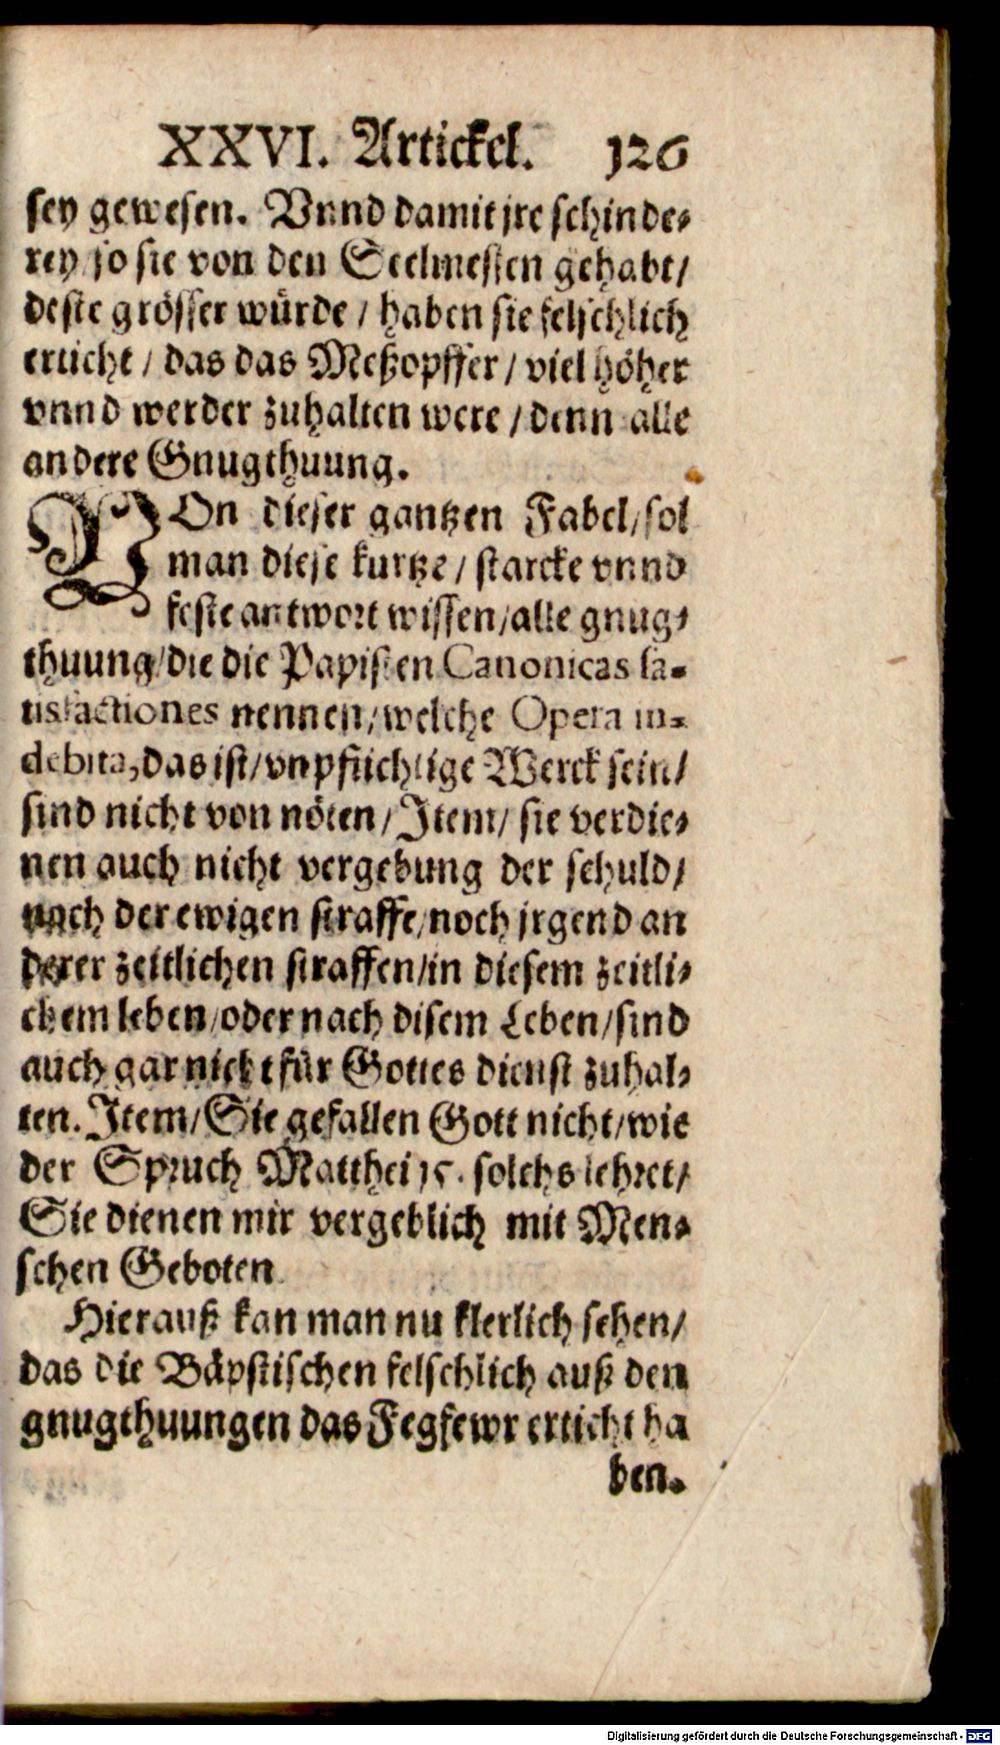 XXVI. Artickel. 126
sey gewesen. Vnnd damit jre schinde-
rey so sie von den Seelmessen gehabt/
deste grösser würde / haben sie felschlich
erticht / das das Meßopffer / viel höher
vnnd werder zuhalten were / denn alle
andere Gnugthuung.
VOn dieser gantzen Fabel/ sol
man diese kurtze / starcke vnnd
feste antwort wissen/ alle gnug-
thuung/ die die Papisten Canonicas sa-
tisfactiones nennen/ welche Opera in-
debita, das ist/ vnpflichtige Werck sein/
sind nicht von nöten / Item/ sie verdie-
nen auch nicht vergebung der schuld/
noch der ewigen straffe/ noch jrgend an
derer zeitlichen straffen/ in diesem zeitli-
chem leben/ oder nach disem Leben/ sind
auch gar nicht für Gottes dienst zuhal-
ten. Item/ Sie gefallen Gott nicht/ wie
der Spruch Matthei 15. solchs lehret/
Sie dienen mir vergeblich mit Men-
schen Geboten.
Hierauß kan man nu klerlich sehen/
das die Bäpstischen felschlich auß den
gnugthuungen das Fegfewr erticht ha
ben.
Digitalisierung gefördert durch die Deutsche Forschungsgemeinschaft - DFG